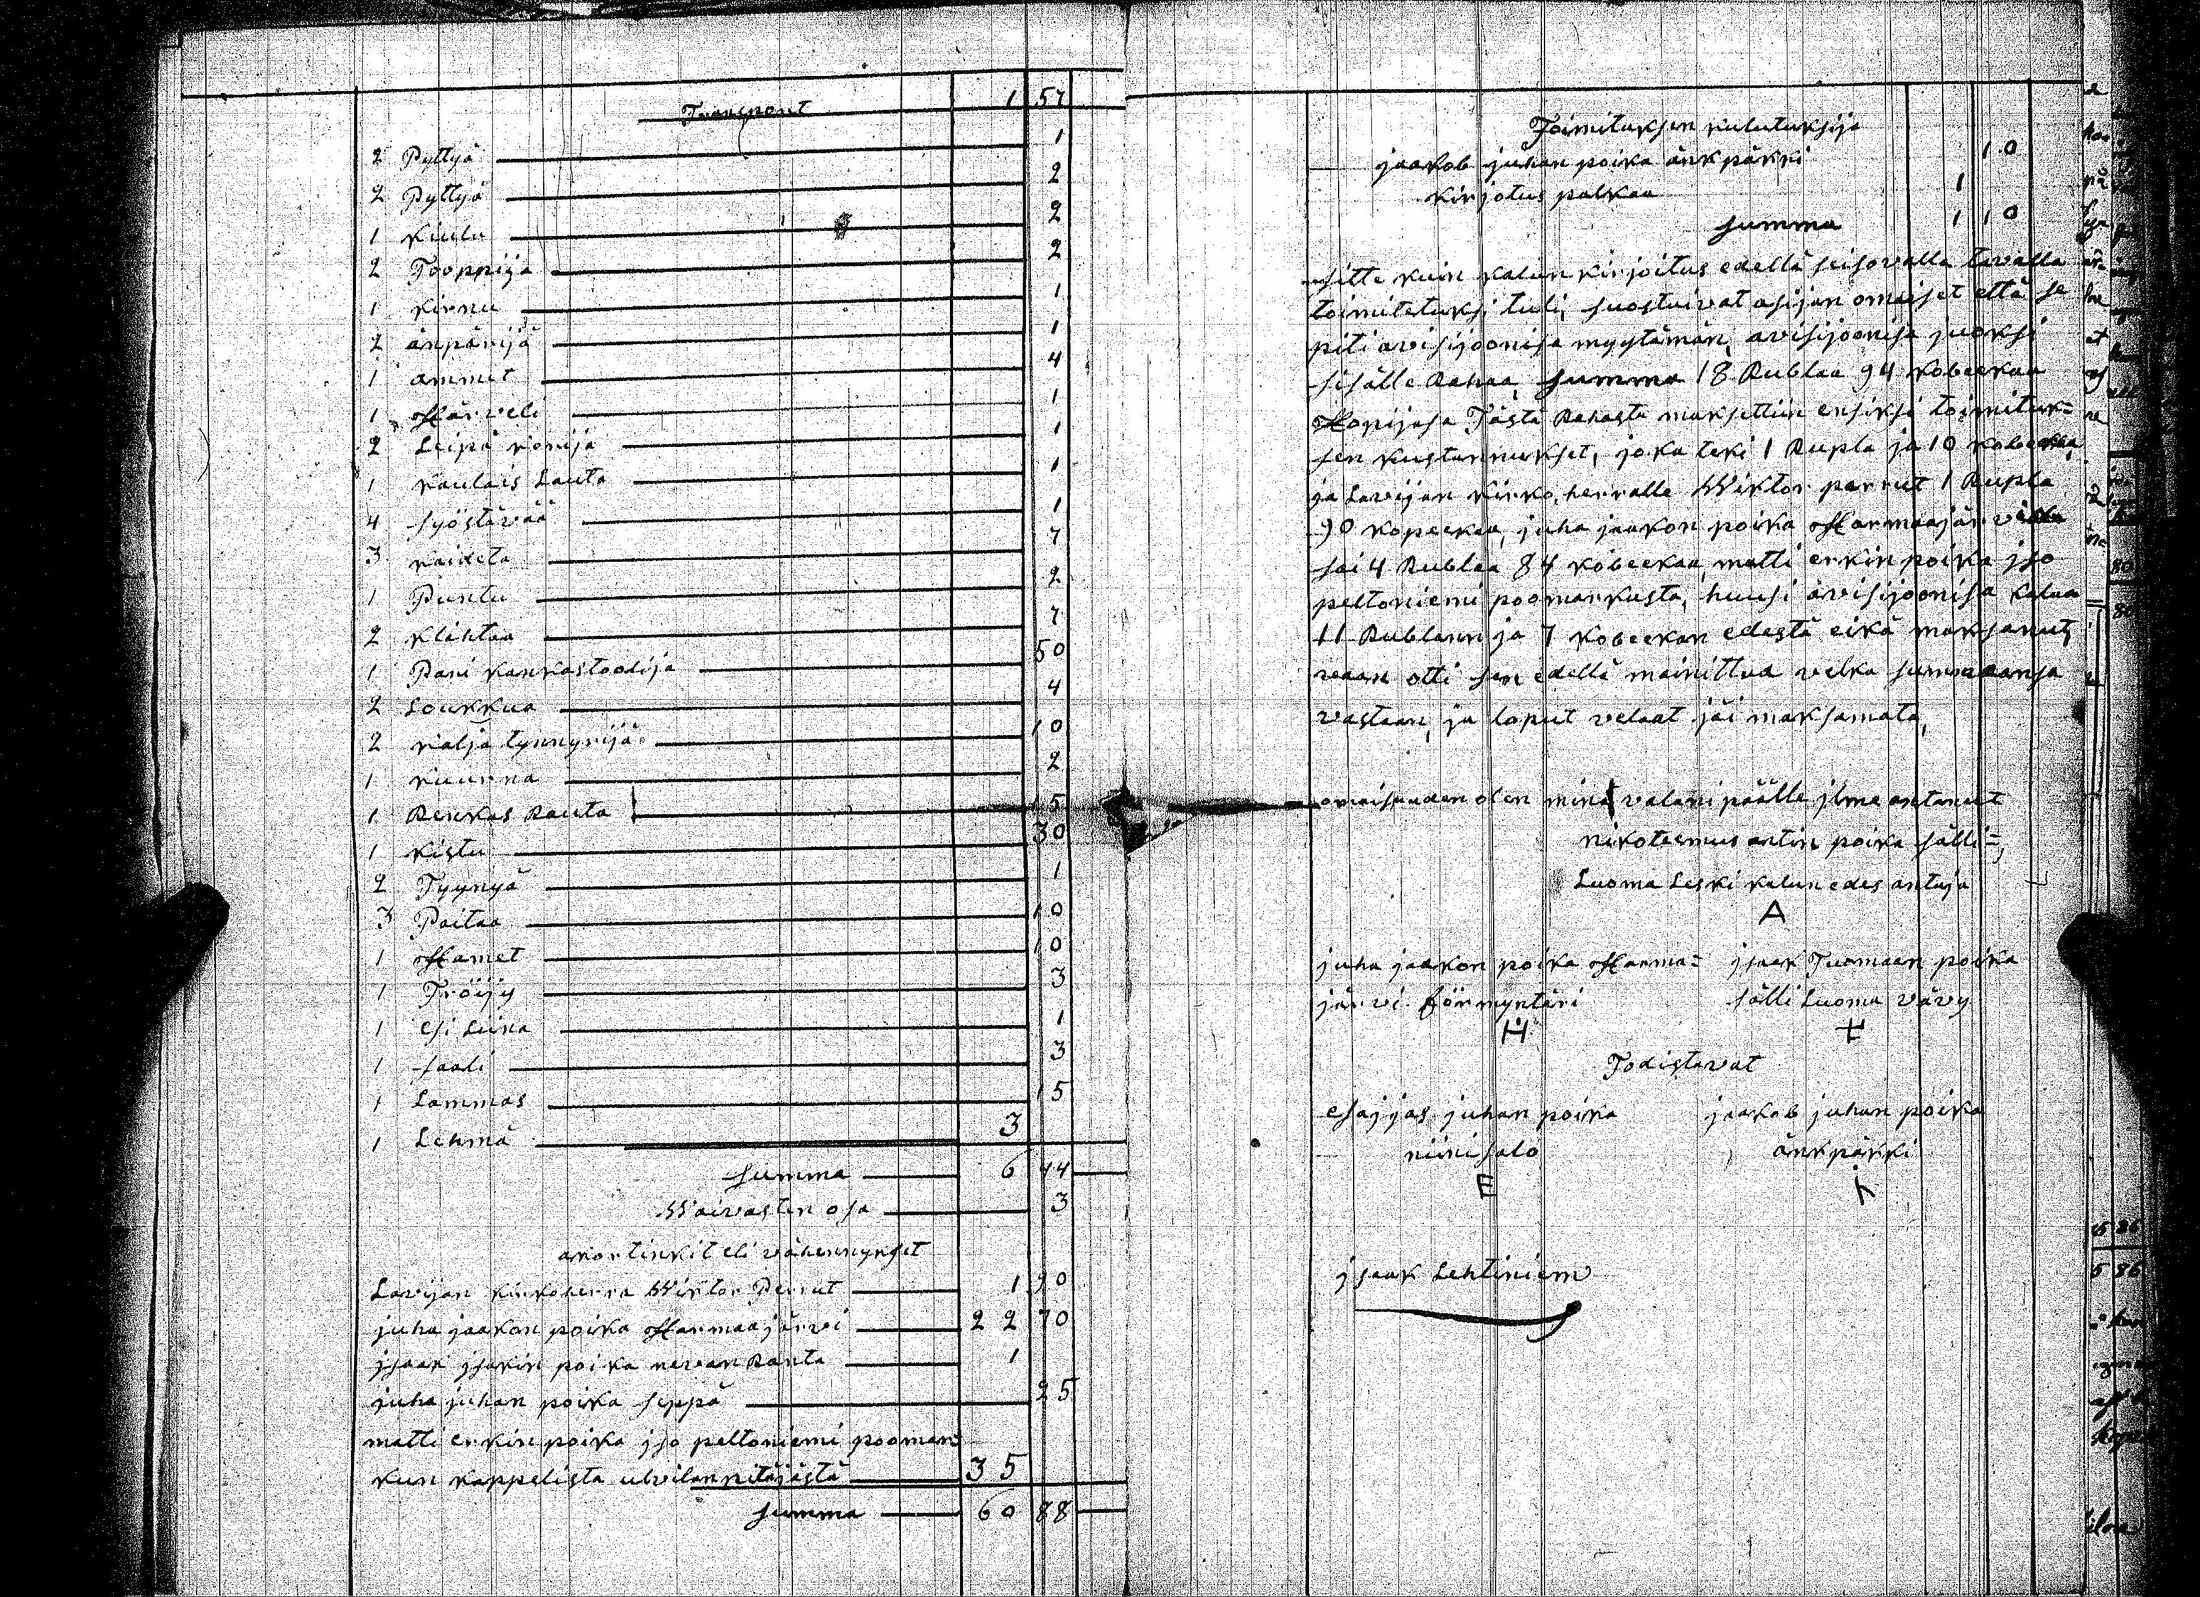 Transport 1 57
2 Pyttyä 1
2 Pyttyä 2
1 Kiulu 2
2 Tooppija 2
1 kirnu 1
2 änpärijä 1
1 ammet 4
1 Härveli 1
2 Leipä korija 1
1 kaulais Lauta 1
4 syöstävää 1
3 kaideta 7
1 Puntu 2
2 klihtaa 7
1 Pari kankastoolija 50
2 Loukkua 4
2 kalja tynnyrijä 10
1 kuurna 2
1 Renkas Rauta 15
1 kistu 30
2 Tyynyä 1
3 Paitaa 10
1 Hamet 10
1 Tröijy 3
1 esi Liina 1
1 saali 3
1 Lammas 15
1 Lehmä 3
summa 6 44
Waivastin osa 3
avortinkit eli vähennykset
Lavijan kirkoherra Wiktor Perrut 1 90
juha jaakon poika Harmaajärvi 22 70
jsaak jsakin poika nevan Ranta 1
juha juhan poika seppä 25
matti erkin poika jso peltoniemi pooman
kun kappelista ulvilan pitäjästä 35
summa 60 88
Toimituksen kulutuksija
jaakob juhan poika änkpärki 10
kirjotus palkaa 1
summa 1 10
sitte kuin kalun kirjoitus edellä seisovalla tavalla
toimitetuksi tuli, suostuivat asijan omaiset että se
piti avisijoonisa myytämän, avisijoonisa juoksi
sisälle Rahaa summa 18 Rublaa 94 kobeekaa
Hopijasa Tästä Rahasta maksettiin ensiksi toimituk=
sen kustannukset, joka teki 1 Rupla ja 10 kobeekaa,
ja Lavijan kirko herralle Wiktor perrut 1 Rupla
90 kopeekaa, juha jaakon poika Harmaajärvi
sai 4 Rublaa 84 kobeekaa, matti erkin poika jso
peltoniemi poomarkusta, huusi avisijoonisa kalua
11 Rublann ja 7 kobeekan edestä eikä maksanut,
vaan otti sen edellä mainittua velka summaansa
vastaan, ja loput velaat jäi maksamata,
omaisuuden olen minä valani päälle jlme antanut
nikoteemus antin poika sälli=
Luoma Leski kalun edes antaja
A
juha jaakon poika Harma= jsaak Tuomaan poika
järvi förmyntäri sälli Luoma vävy
H +
Todistavat
esajjas juhan poika jaakob juhan poika
niinisalo änkpärki
E
jsaak Lehtiniem